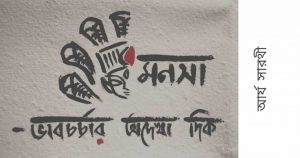 মনসা
- ভাবচর্চার অদেখা দিক
আর্য সারথী